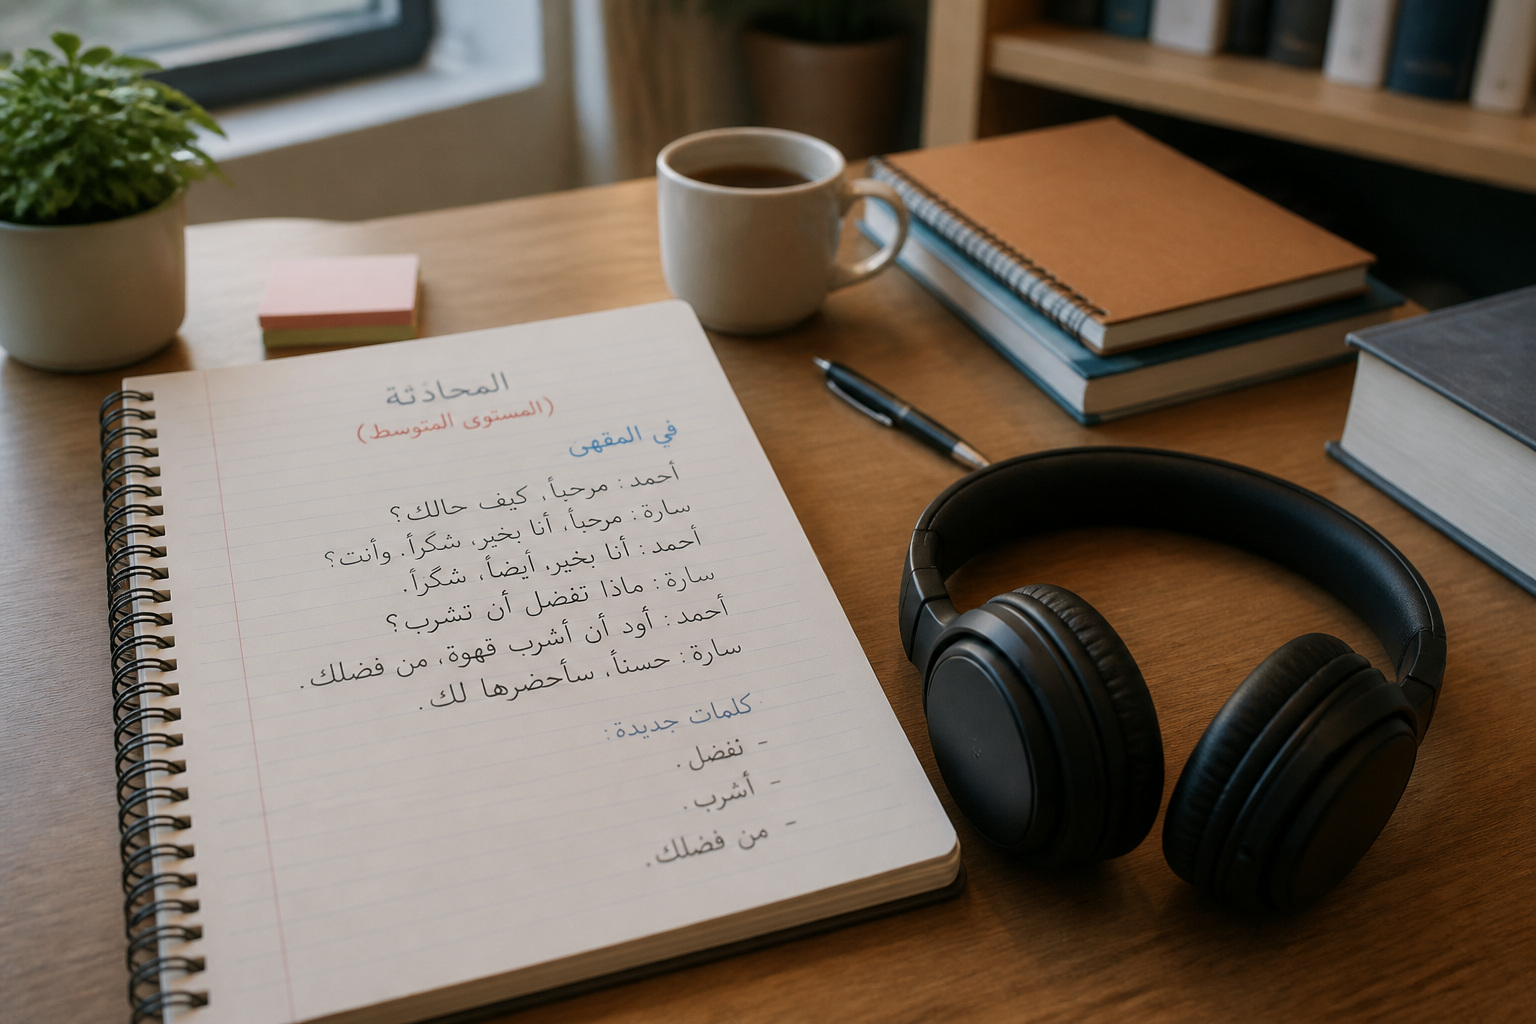 المحادثة
(المستوى المتوسط)
في المقهى
أحمد: مرحباً، كيف حالك؟
سارة: مرحباً، أنا بخير، شگراً. وأنت؟
أحمد: أنا بخير، أيضاً، شگراً.
سارة: ماذا تفضل أن تشرب؟
أحمد: أود أن أشرب قهوة، من فضلك.
سارة: حسناً، سأحضرها لك.
كلمات جديدة:
- نفضل.
- أشرب.
- من فضلك.